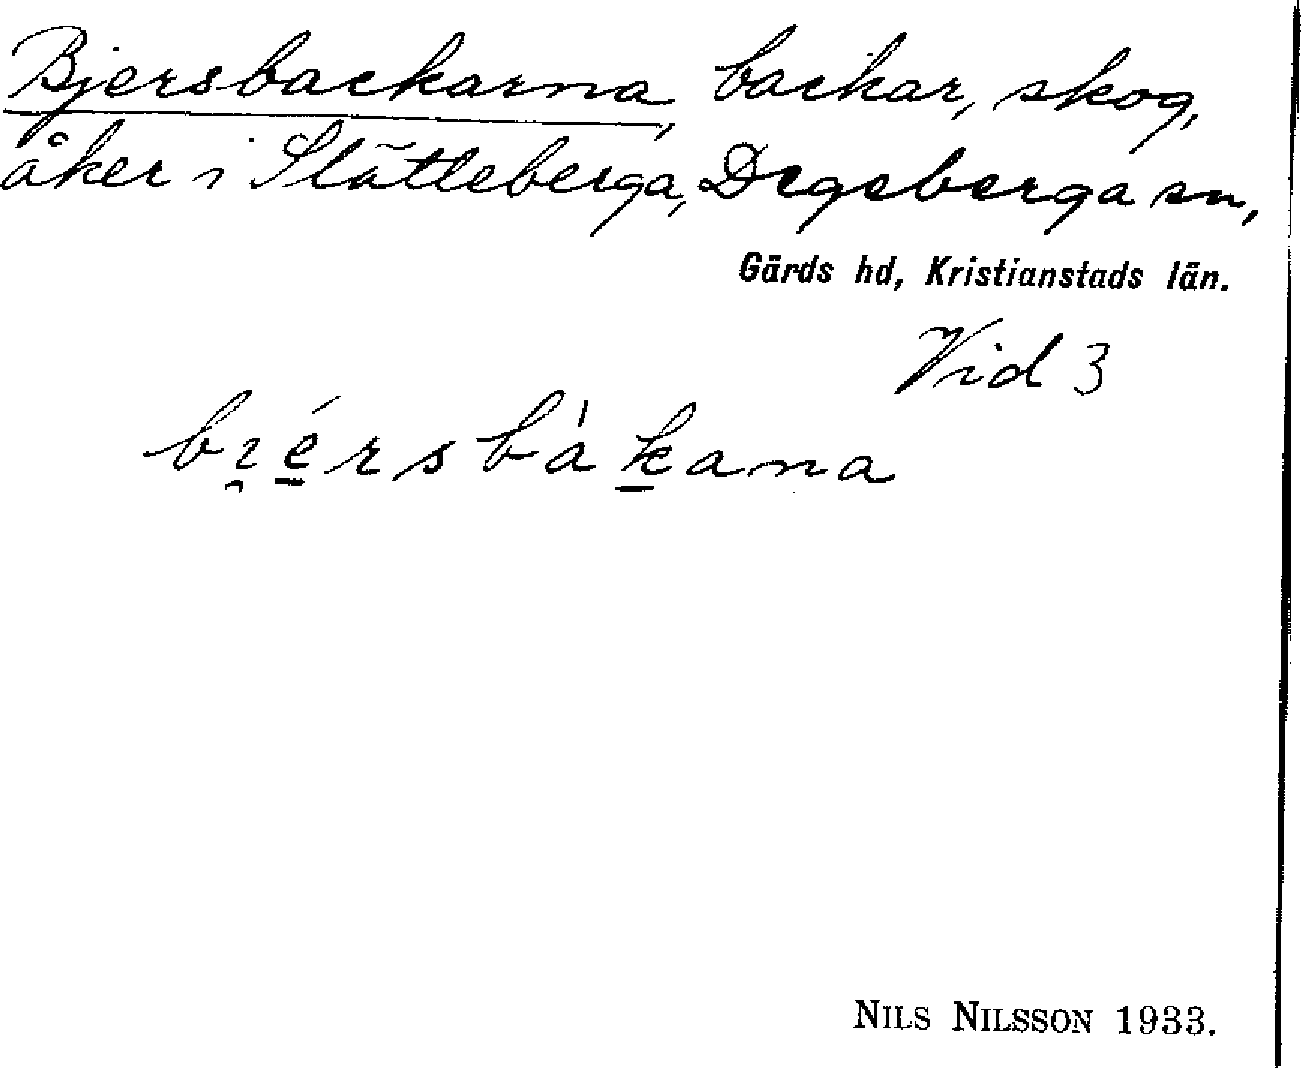 Bjersbackarna, backar, skog,
åker i Slätteberga, Degeberga sn,
Gärds hd, Kristianstads län.
Vid 3
bi̯é̠rsbàk̠ana
NILS NILSSON 1933.